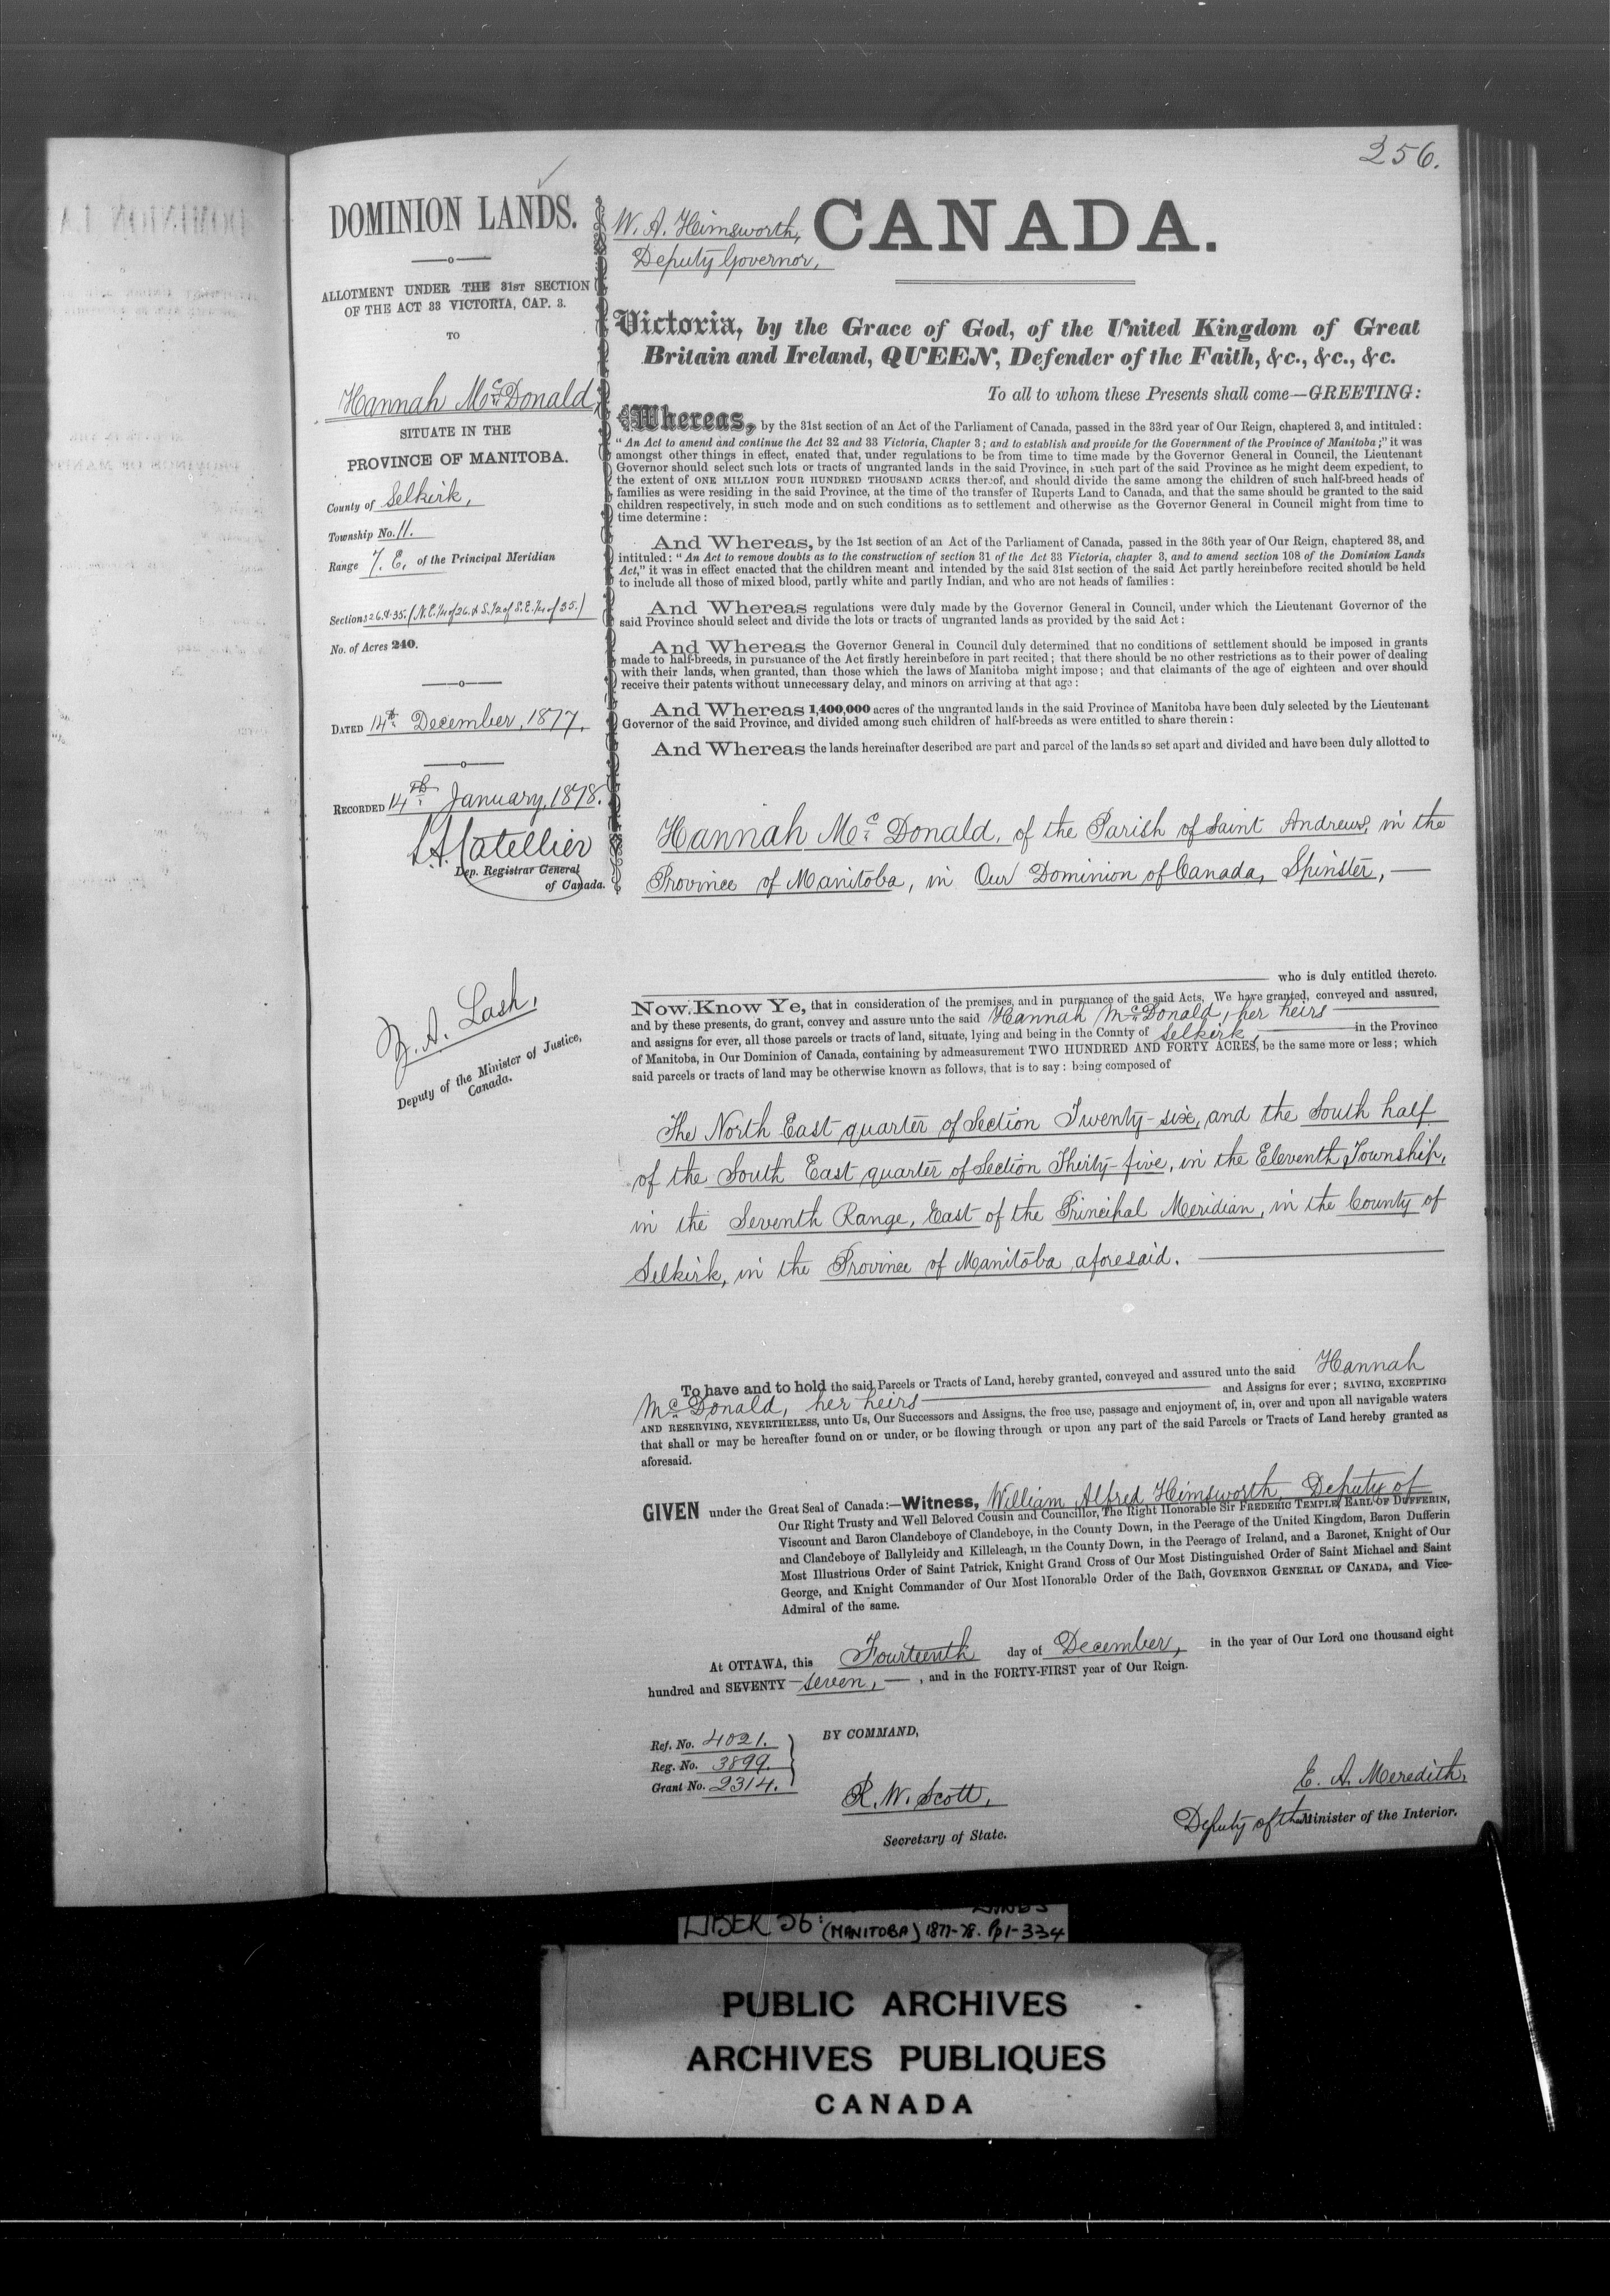 256.
DOMINION LANDS.
ALLOTMENT UNDER THE 31ST SECTION
OF THE ACT 33 VICTORIA, CAP. 3.
TO
Hannah McDonald,
SITUATE IN THE
PROVINCE OF MANITOBA.
County of Selkirk,
Township No. 11.
Range 7. E, of the Principal Meridian
Sections 26.&35. (N.E.1/4 of 26. & S.1/2 of S.E.1/4 of 35.)
No. of Acres 240.
DATED 14th December, 1877.
RECORDED 14th January, 1878.
Dep. Registrar General
of Canada.
Z. A. Lash,
Deputy of the Minister of Justice,
Canada.
W. A. Himsworth,
Deputy Governor,
CANADA.
Victoria, by the Grace of God, of the United Kingdom of Great
Britain and Ireland, QUEEN, Defender of the Faith, &c., &c., &c.
To all to whom these Presents shall come—GREETING:
Whereas, by the 31st section of an Act of the Parliament of Canada, passed in the 33rd year of Our Reign, chaptered 3, and intituled:
"An Act to amend and continue the Act 32 and 33 Victoria, Chapter 3; and to establish and provide for the Government of the Province of Manitoba;" it was
amongst other things in effect, enated that, under regulations to be from time to time made by the Governor General in Council, the Lieutenant
Governor should select such lots or tracts of ungranted lands in the said Province, in such part of the said Province as he might deem expedient, to
the extent of ONE MILLION FOUR HUNDRED THOUSAND ACRES thereof, and should divide the same among the children of such half-breed heads of
families as were residing in the said Province, at the time of the transfer of Ruperts Land to Canada, and that the same should be granted to the said
children respectively, in such mode and on such conditions as to settlement and otherwise as the Governor General in Council might from time to
time determine:
And Whereas, by the 1st section of an Act of the Parliament of Canada, passed in the 36th year of Our Reign, chaptered 38, and
intituled: "An Act to remove doubts as to the construction of section 31 of the Act 33 Victoria, chapter 3, and to amend section 108 of the Dominion Lands
Act," it was in effect enacted that the children meant and intended by the said 31st section of the said Act partly hereinbefore recited should be held
to include all those of mixed blood, partly white and partly Indian, and who are not heads of families:
And Whereas regulations were duly made by the Governor General in Council, under which the Lieutenant Governor of the
said Province should select and divide the lots or tracts of ungranted lands as provided by the said Act:
And Whereas the Governor General in Council duly determined that no conditions of settlement should be imposed in grants
made to half-breeds, in pursuance of the Act firstly hereinbefore in part recited; that there should be no other restrictions as to their power of dealing
with their lands, when granted, than those which the laws of Manitoba might impose; and that claimants of the age of eighteen and over should
receive their patents without unnecessary delay, and minors on arriving at that age:
And Whereas 1,400,000 acres of the ungranted lands in the said Province of Manitoba have been duly selected by the Lieutenant
Governor of the said Province, and divided among such children of half-breeds as were entitled to share therein:
And Whereas the lands hereinafter described are part and parcel of the lands so set apart and divided and have been duly allotted to
Hannah McDonald, of the Parish of Saint Andrews, in the
Province of Manitoba, in Our Dominion of Canada, Spinster, —
who is duly entitled thereto.
Now Know Ye, that in consideration of the premises, and in pursuance of the said Acts, We have granted, conveyed and assured,
and by these presents, do grant, convey and assure unto the said Hannah McDonald, her heirs
and assigns for ever, all those parcels or tracts of land, situate, lying and being in the County of Selkirk, in the Province
of Manitoba, in Our Dominion of Canada, containing by admeasurement TWO HUNDRED AND FORTY ACRES, be the same more or less; which
said parcels or tracts of land may be otherwise known as follows, that is to say: being composed of
The North East quarter of Section Twenty-six, and the South half
of the South East quarter of Section Thirty-five, in the Eleventh Township,
in the Seventh Range, East of the Principal Meridian, in the County of
Selkirk, in the Province of Manitoba aforesaid.
To have and to hold the said Parcels or Tracts of Land, hereby granted, conveyed and assured unto the said Hannah
McDonald, her heirs and Assigns for ever; SAVING, EXCEPTING
AND RESERVING, NEVERTHELESS, unto Us, Our Successors and Assigns, the free use, passage and enjoyment of, in, over and upon all navigable waters
that shall or may be hereafter found on or under, or be flowing through or upon any part of the said Parcels or Tracts of Land hereby granted as
aforesaid.
GIVEN under the Great Seal of Canada:—Witness, William Alfred Himsworth, Deputy of
Our Right Trusty and Well Beloved Cousin and Councillor, The Right Honorable Sir FREDERIC TEMPLE, EARL OF DUFFERIN,
Viscount and Baron Clandeboye of Clandeboye, in the County Down, in the Peerage of the United Kingdom, Baron Dufferin
and Clandeboye of Ballyleidy and Killeleagh, in the County Down, in the Peerage of Ireland, and a Baronet, Knight of Our
Most Illustrious Order of Saint Patrick, Knight Grand Cross of Our Most Distinguished Order of Saint Michael and Saint
George, and Knight Commander of Our Most Honorable Order of the Bath, GOVERNOR GENERAL OF CANADA, and Vice-
Admiral of the same.
At OTTAWA, this Fourteenth day of December, in the year of Our Lord one thousand eight
hundred and SEVENTY-seven, —, and in the FORTY-FIRST year of Our Reign.
Ref. No. 4021.
Reg. No. 3899.
Grant No. 2314.
BY COMMAND,
R. W. Scott,
Secretary of State.
E. A. Meredith,
Deputy of the Minister of the Interior.
LIBER 56: LANDS
(MANITOBA) 1877-78. Pp 1-334
PUBLIC ARCHIVES
ARCHIVES PUBLIQUES
CANADA